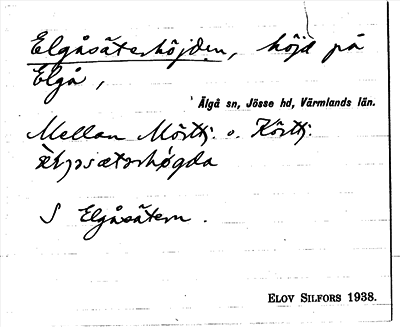 Elgåsäterhöjden, höjd på
Elgå,
Älgå sn, Jösse hd, Värmlands län.
Mellan Mörttj. o. Körttj.
S Elgåsätern.
ELOV SILFORS 1938.